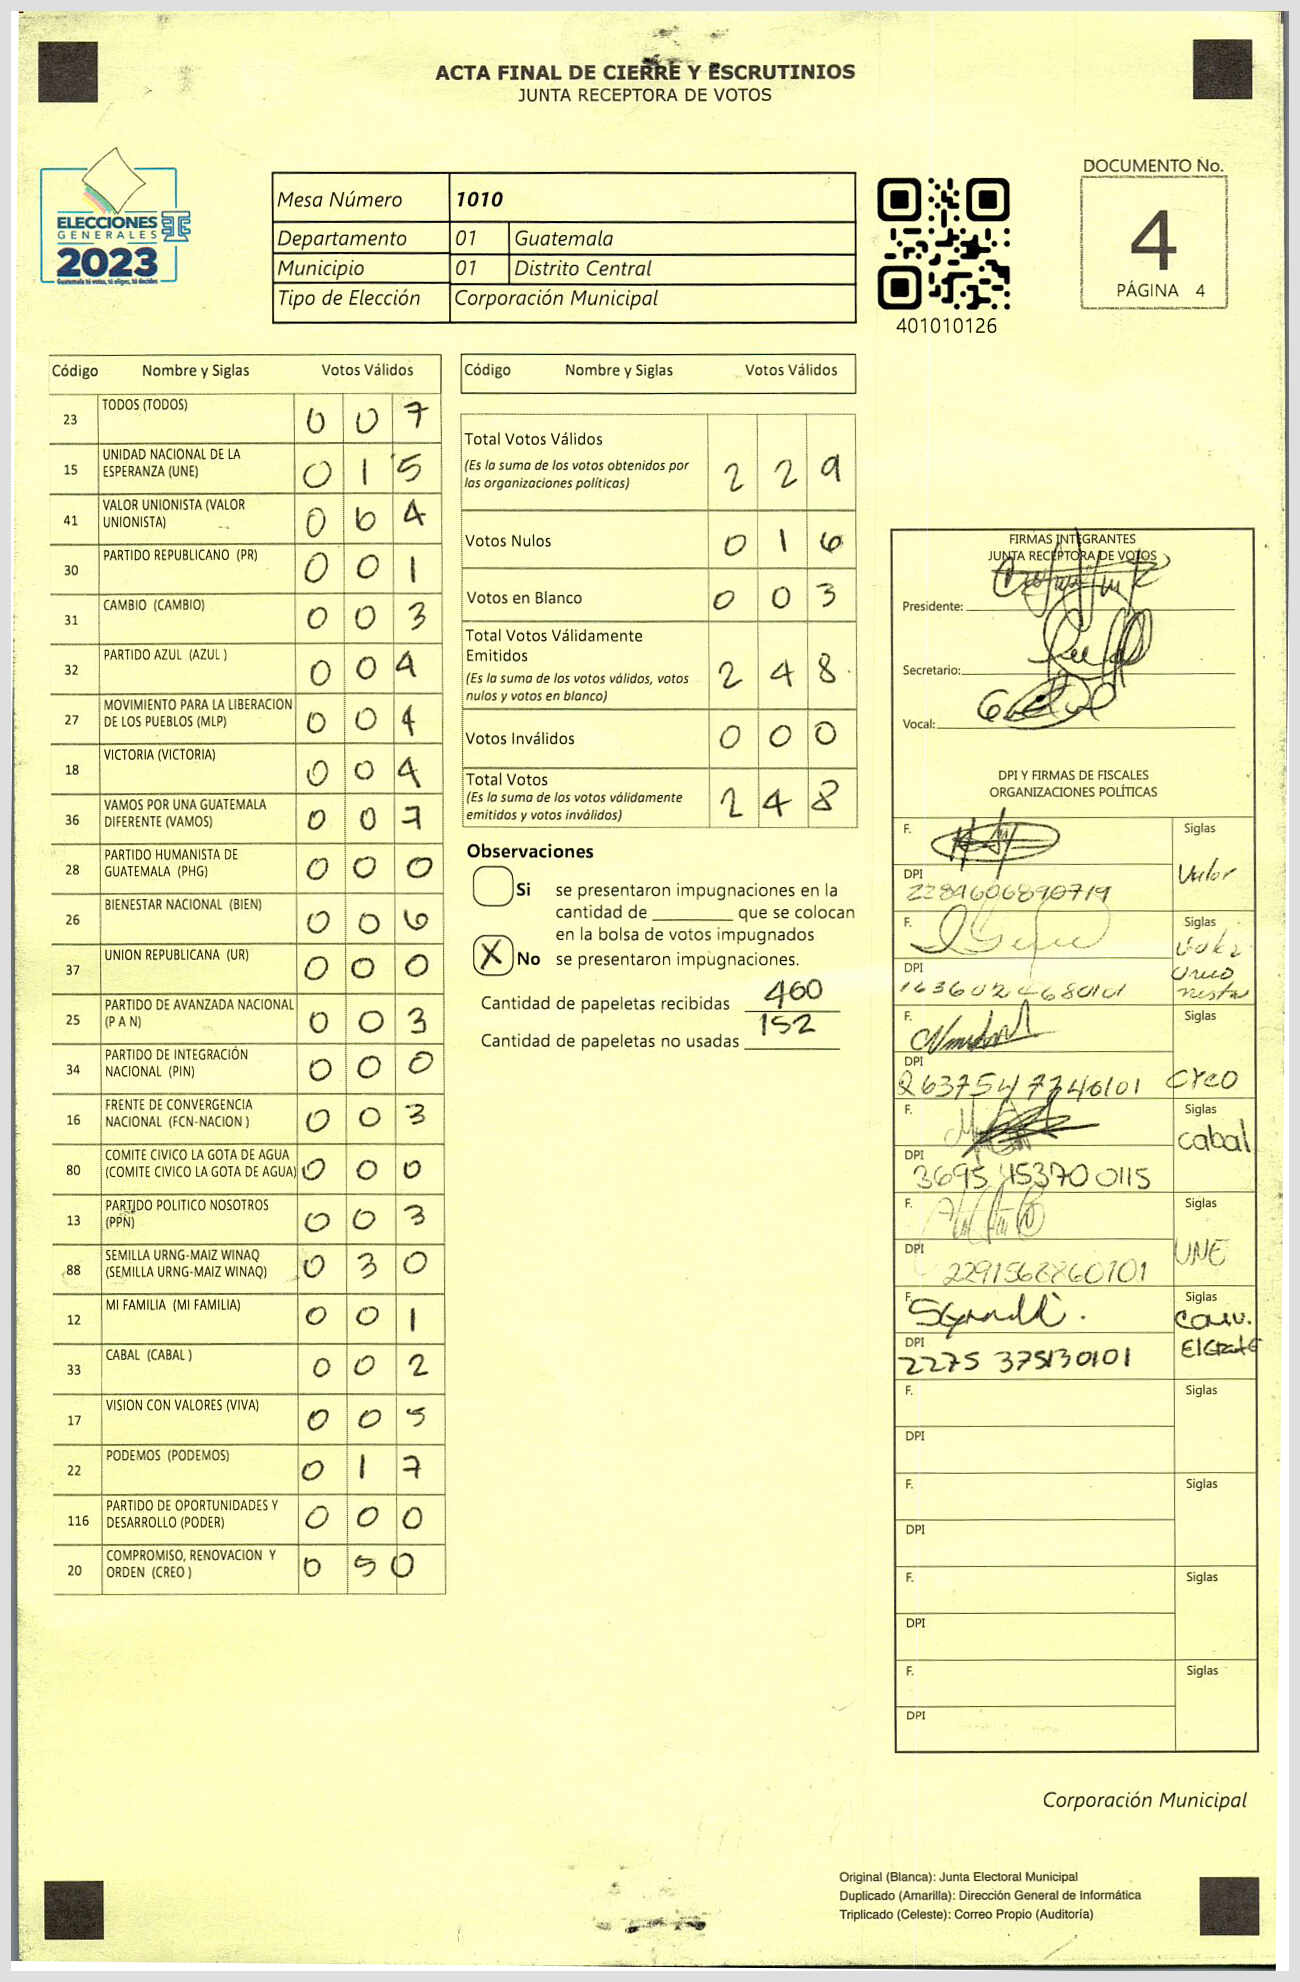 ACTA FINAL DE CIERRE Y ESCRUTINIOS
JUNTA RECEPTORA DE VOTOS
ELECCIONES
GENERALES
2023
Guatemala tú votas, tú eliges, tú decides
Mesa Número 1010
Departamento 01 Guatemala
Municipio 01 Distrito Central
Tipo de Elección Corporación Municipal
401010126
DOCUMENTO No.
4
PÁGINA 4
Código Nombre y Siglas Votos Válidos
23 TODOS (TODOS) 0 0 7
15 UNIDAD NACIONAL DE LA
ESPERANZA (UNE) 0 1 5
41 VALOR UNIONISTA (VALOR
UNIONISTA) 0 6 4
30 PARTIDO REPUBLICANO (PR) 0 0 1
31 CAMBIO (CAMBIO) 0 0 3
32 PARTIDO AZUL (AZUL ) 0 0 4
27 MOVIMIENTO PARA LA LIBERACION
DE LOS PUEBLOS (MLP) 0 0 4
18 VICTORIA (VICTORIA) 0 0 4
36 VAMOS POR UNA GUATEMALA
DIFERENTE (VAMOS) 0 0 7
28 PARTIDO HUMANISTA DE
GUATEMALA (PHG) 0 0 0
26 BIENESTAR NACIONAL (BIEN) 0 0 6
37 UNION REPUBLICANA (UR) 0 0 0
25 PARTIDO DE AVANZADA NACIONAL
(P A N) 0 0 3
34 PARTIDO DE INTEGRACIÓN
NACIONAL (PIN) 0 0 0
16 FRENTE DE CONVERGENCIA
NACIONAL (FCN-NACION ) 0 0 3
80 COMITE CIVICO LA GOTA DE AGUA
(COMITE CIVICO LA GOTA DE AGUA) 0 0 0
13 PARTIDO POLITICO NOSOTROS
(PPN) 0 0 3
88 SEMILLA URNG-MAIZ WINAQ
(SEMILLA URNG-MAIZ WINAQ) 0 3 0
12 MI FAMILIA (MI FAMILIA) 0 0 1
33 CABAL (CABAL ) 0 0 2
17 VISION CON VALORES (VIVA) 0 0 5
22 PODEMOS (PODEMOS) 0 1 7
116 PARTIDO DE OPORTUNIDADES Y
DESARROLLO (PODER) 0 0 0
20 COMPROMISO, RENOVACION Y
ORDEN (CREO ) 0 5 0
Código Nombre y Siglas Votos Válidos
Total Votos Válidos
(Es la suma de los votos obtenidos por
las organizaciones políticas) 2 2 9
Votos Nulos 0 1 6
Votos en Blanco 0 0 3
Total Votos Válidamente
Emitidos
(Es la suma de los votos válidos, votos
nulos y votos en blanco) 2 4 8
Votos Inválidos 0 0 0
Total Votos
(Es la suma de los votos válidamente
emitidos y votos inválidos) 2 4 8
Observaciones
Si se presentaron impugnaciones en la
cantidad de ________ que se colocan
en la bolsa de votos impugnados
X No se presentaron impugnaciones.
Cantidad de papeletas recibidas 460
Cantidad de papeletas no usadas 152
FIRMAS INTEGRANTES
JUNTA RECEPTORA DE VOTOS
Presidente:
Secretario:
Vocal:
DPI Y FIRMAS DE FISCALES
ORGANIZACIONES POLÍTICAS
F. Siglas
Valor
DPI
2284606890719
F. Siglas
DPI
F. Siglas
DPI
2637547740101 creo
F. Siglas
cabal
DPI
3695 15370 0115
F. Siglas
UNE
DPI
F. Siglas
DPI
2275 375130101
F. Siglas
DPI
F. Siglas
DPI
F. Siglas
DPI
F. Siglas
DPI
Corporación Municipal
Original (Blanca): Junta Electoral Municipal
Duplicado (Amarilla): Dirección General de Informática
Triplicado (Celeste): Correo Propio (Auditoría)